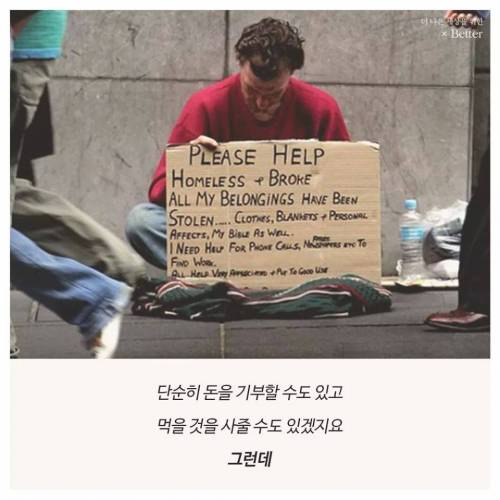 더 나은 세상을 위한
× Better
PLEASE HELP
HOMELESS + BROKE
ALL MY BELONGINGS HAVE BEEN
STOLEN..... CLOTHES, BLANKETS + PERSONAL
AFFECTS, MY BIBLE AS WELL.
I NEED HELP FOR PHONE CALLS, NEWSPAPERS ETC TO
FIND WORK.
ALL HELP VERY APPRECIATED + PUT TO GOOD USE
단순히 돈을 기부할 수도 있고
먹을 것을 사줄 수도 있겠지요
그런데